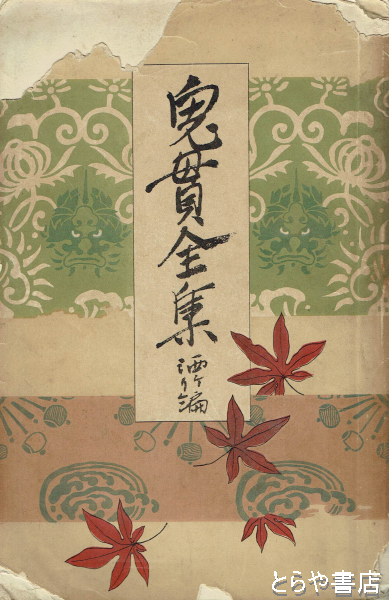 鬼貫全集
酒竹編
とらや書店